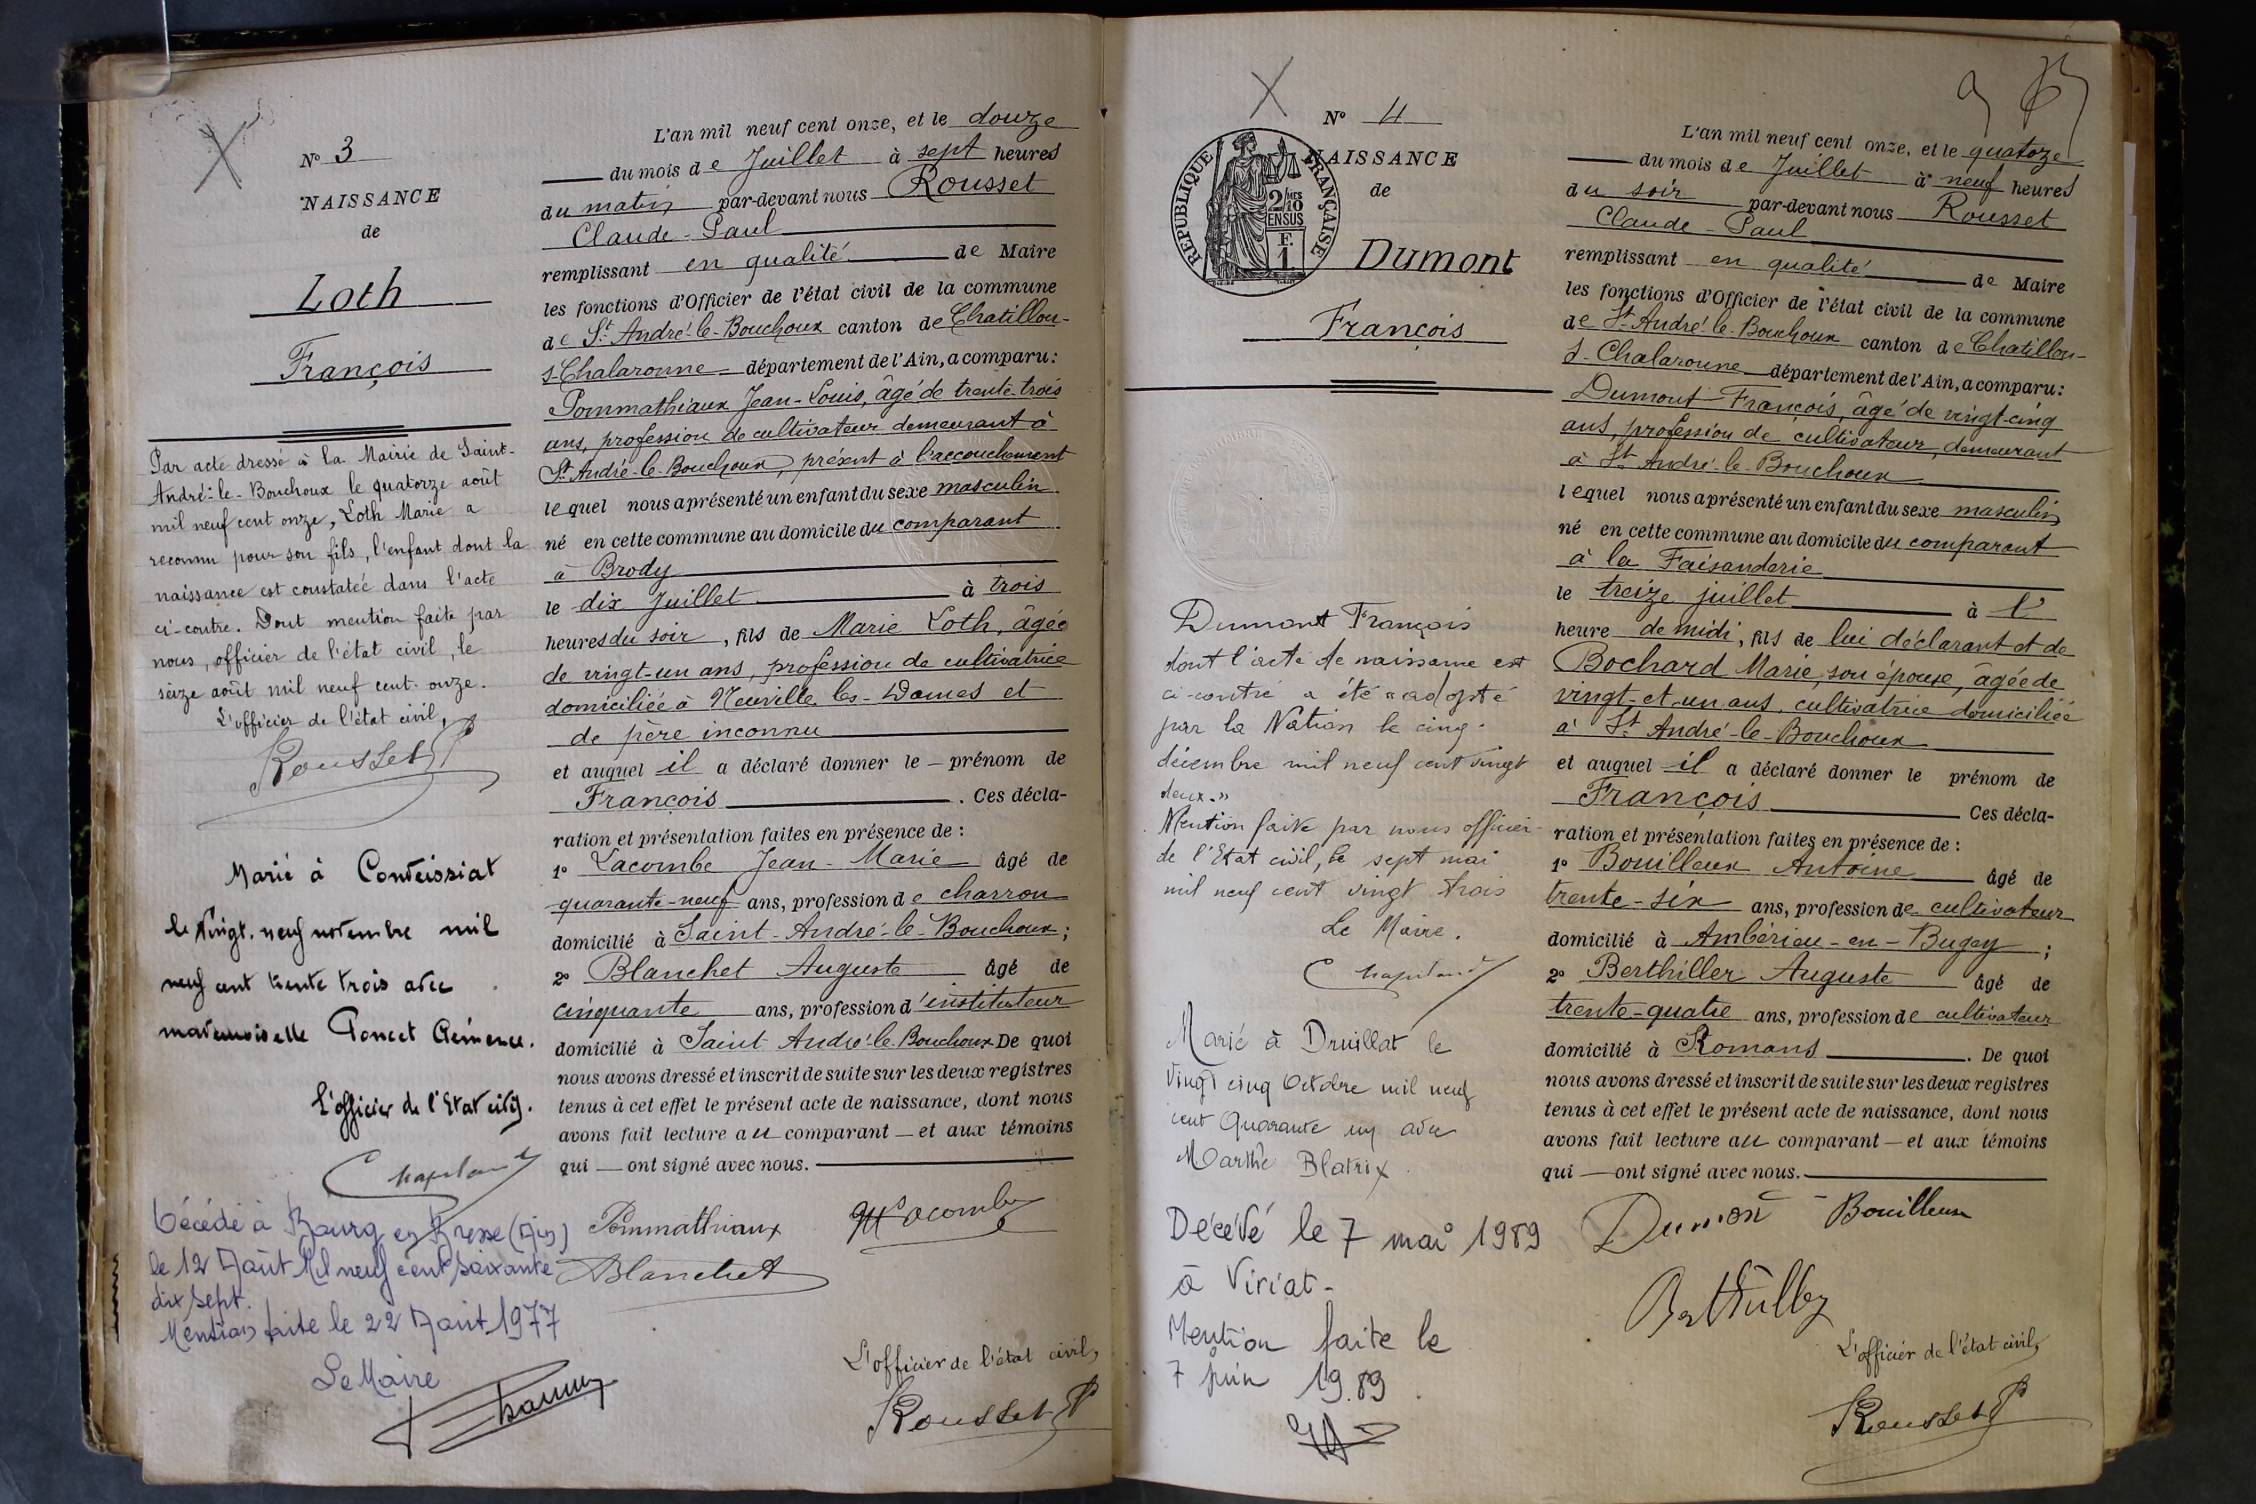 N° 3
NAISSANCE
de
Loth
François
Par acte dressé à la Mairie de Saint-
André-le-Bouchoux le quatorze août
mil neuf cent onze, Loth Marie a
reconnu pour son fils, l'enfant dont la
naissance est constatée dans l'acte
ci-contre. Dont mention faite par
nous, officier de l'état civil, le
seize août mil neuf cent onze.
L'officier de l'état civil,
Rousset P
Marié à Condeissiat
le vingt-neuf novembre mil
neuf cent trente trois avec
mademoiselle Poncet Clémence.
L'officier de l'Etat civil.
Décédé à Bourg en Bresse (Ain)
le 12 Août Mil neuf cent soixante
dix sept.
Mention faite le 22 Août 1977
Le Maire
L'an mil neuf cent onze, et le douze
du mois de Juillet à sept heures
du matin par-devant nous Rousset
Claude-Paul
remplissant en qualité de Maire
les fonctions d'Officier de l'état civil de la commune
de St André-le-Bouchoux canton de Chatillon-
s-Chalaronne département de l'Ain, a comparu:
Pommathiaux Jean-Louis, âgé de trente-trois
ans, profession de cultivateur demeurant à
St André-le-Bouchoux, présent à l'accouchement
lequel nous a présenté un enfant du sexe masculin.
né en cette commune au domicile du comparant
à Brody
le dix Juillet à trois
heures du soir, fils de Marie Loth, âgée
de vingt-un ans, profession de cultivatrice
domiciliée à Neuville-les-Dames et
de père inconnu
et auquel il a déclaré donner le - prénom de
François. Ces décla-
ration et présentation faites en présence de :
1° Lacombe Jean-Marie âgé de
quarante-neuf ans, profession de charron
domicilié à Saint-André-le-Bouchoux;
2° Blanchet Auguste âgé de
cinquante ans, profession d'instituteur
domicilié à Saint André-le-Bouchoux De quoi
nous avons dressé et inscrit de suite sur les deux registres
tenus à cet effet le présent acte de naissance, dont nous
avons fait lecture au comparant — et aux témoins
qui — ont signé avec nous.
Pommathiaux Lacombe
Blanchet
L'officier de l'état civil,
Rousset P
N° 4
NAISSANCE
de
RÉPUBLIQUE FRANÇAISE
2/10
EN SUS
F.
1
Dumont
François
Dumont François
dont l'acte de naissance est
ci-contre a été "adopté
par la Nation le cinq
décembre mil neuf cent vingt
deux."
Mention faite par nous officier
de l'Etat civil, le sept mai
mil neuf cent vingt trois
Le Maire.
Marié à Druillat le
vingt cinq Octobre mil neuf
cent Quarante un avec
Marthe Blatrix.
Décédé le 7 mai 1989
à Viriat-
Mention faite le
7 juin 1989
L'an mil neuf cent onze, et le quatorze
du mois de Juillet à neuf heures
du soir par-devant nous Rousset
Claude-Paul
remplissant en qualité de Maire
les fonctions d'Officier de l'état civil de la commune
de St André-le-Bouchoux canton de Chatillon-
s-Chalaronne département de l'Ain, a comparu:
Dumont François, âgé de vingt-cinq
ans, profession de cultivateur, demeurant
à St André-le-Bouchoux
lequel nous a présenté un enfant du sexe masculin
né en cette commune au domicile du comparant
à la Faisanderie
le treize juillet à l'
heure de midi, fils de lui déclarant et de
Bochard Marie, son épouse, âgée de
vingt-et-un ans, cultivatrice domiciliée
à St André-le-Bouchoux
et auquel il a déclaré donner le prénom de
François Ces décla-
ration et présentation faites en présence de :
1° Bouilloux Antoine âgé de
trente-six ans, profession de cultivateur
domicilié à Ambérieu-en-Bugey ;
2° Berthiller Auguste âgé de
trente-quatre ans, profession de cultivateur
domicilié à Romans. De quoi
nous avons dressé et inscrit de suite sur les deux registres
tenus à cet effet le présent acte de naissance, dont nous
avons fait lecture au comparant — et aux témoins
qui — ont signé avec nous.
Dumont Bouilloux
L'officier de l'état civil,
Rousset P